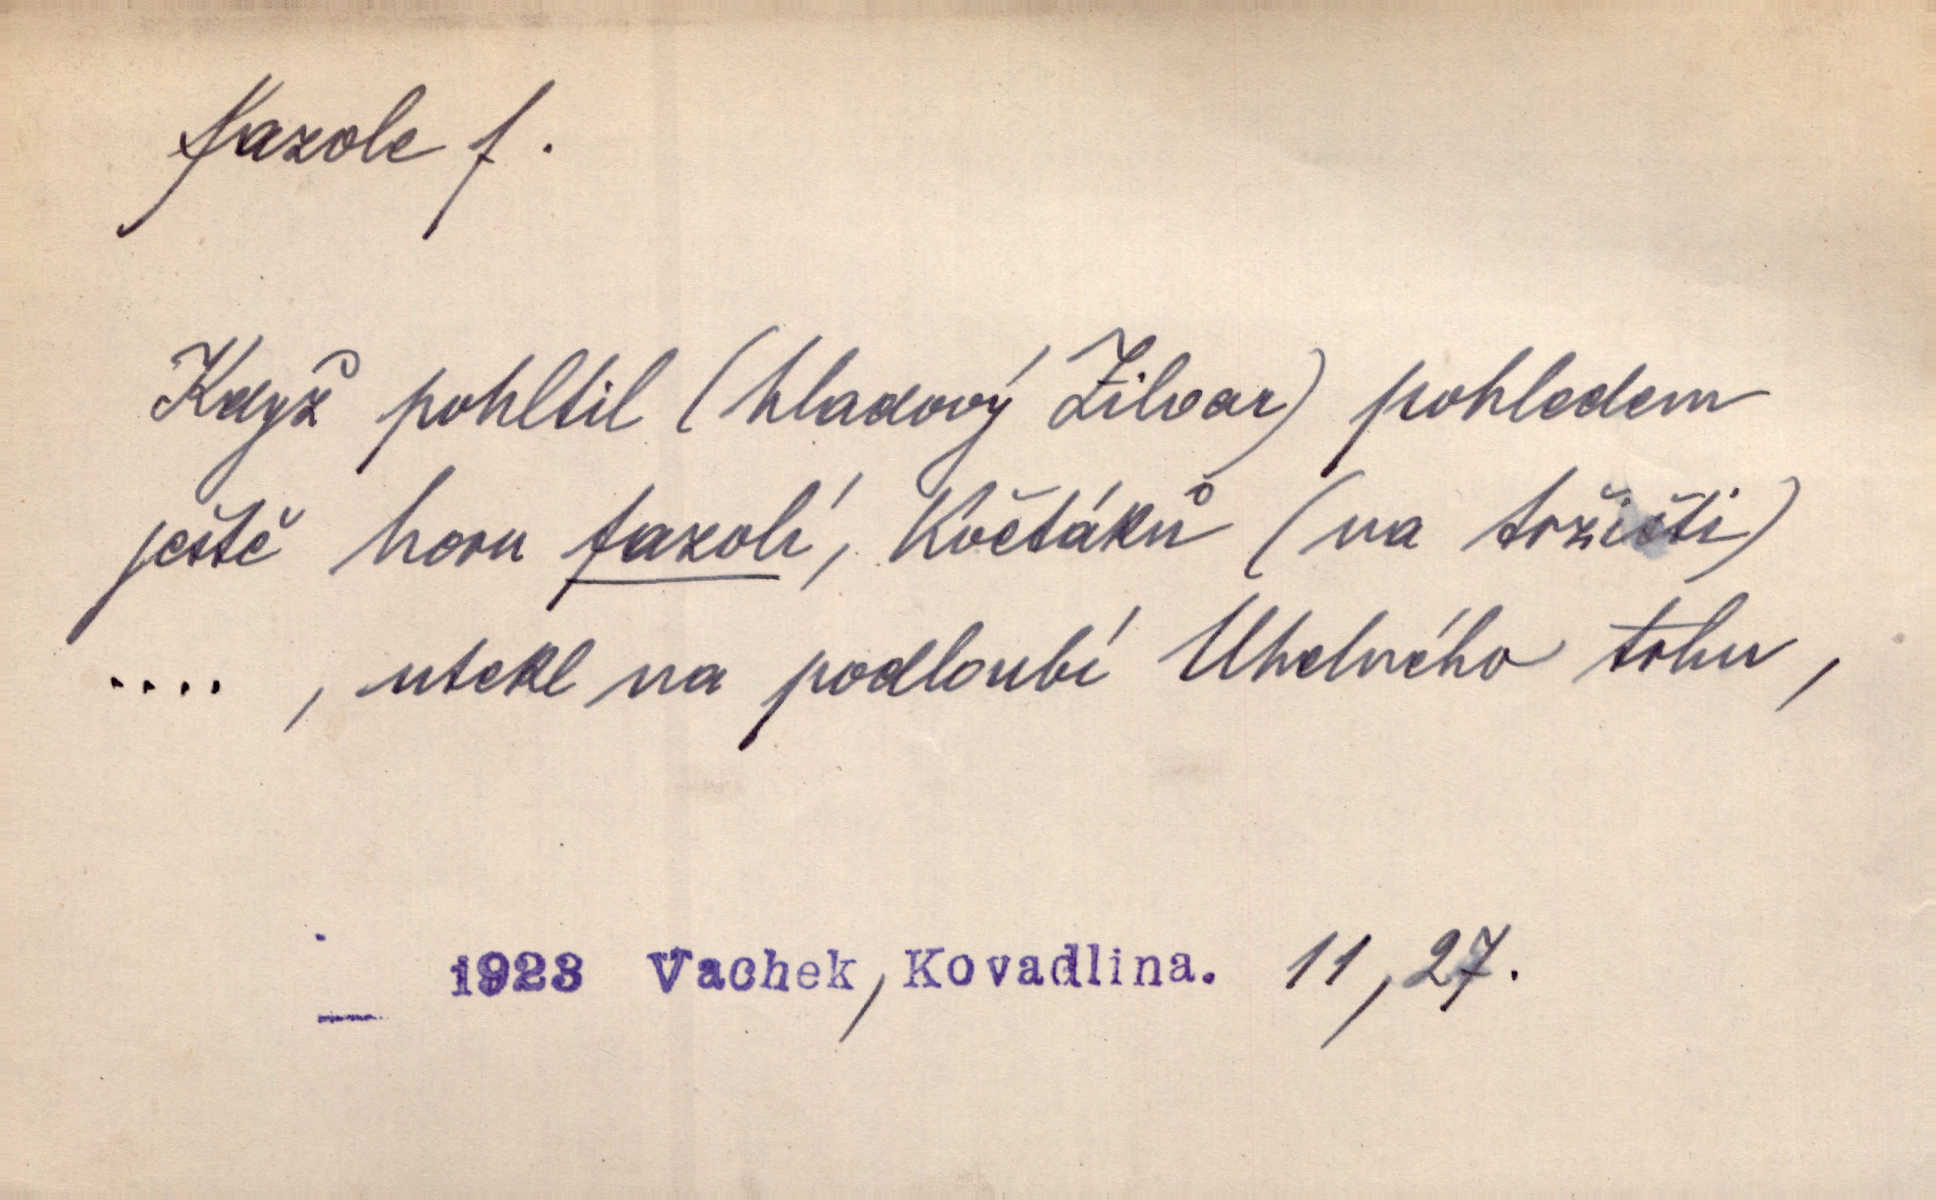 fazole f.
Když pohltil (hladový Žilvar) pohledem
ještě horu fazolí, květáků (na tržišti)
...., utekl na podloubí Uhelného trhu,
1923 Vachek, Kovadlina. 11, 27.